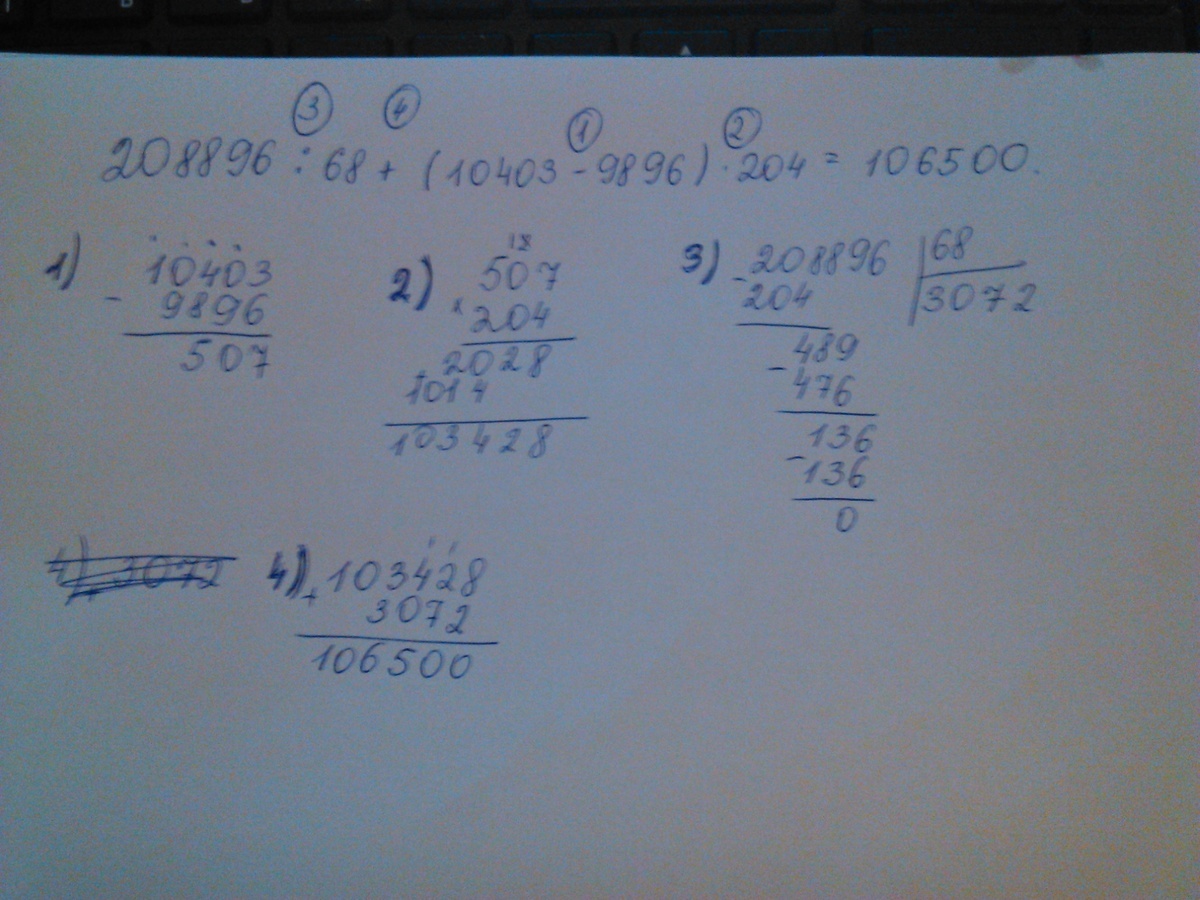 ③ ④ ① ②
208896 : 68 + (10403 - 9896) · 204 = 106500.
1)
10403
- 9896
507
2)
507
× 204
+ 2028
1014
103428
3)
- 208896 | 68
204 | 3072
- 489
476
- 136
136
0
4) + 3072
4) + 103428
3072
106500